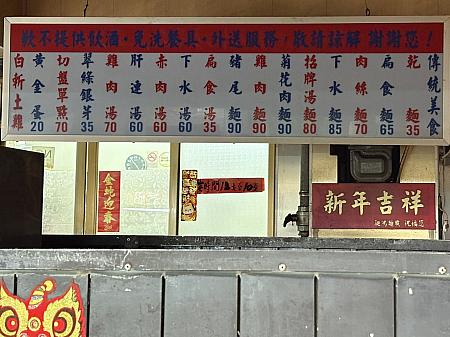 歉不提供飲酒・免洗餐具・外送服務，敬請諒解 謝謝您！
傳統美食
乾麵 35
扁食麵 65
肉絲麵 70
下水麵 85
招牌湯麵 80
菊花肉麵 90
雞肉麵 90
豬尾麵 90
扁食湯 35
下水湯 60
赤肉湯 60
肝連湯 60
雞肉湯 70
翠綠銀芽 35
切盤單點 70
黃金蛋 20
白斬土雞
金蛇迎春
新年吉祥